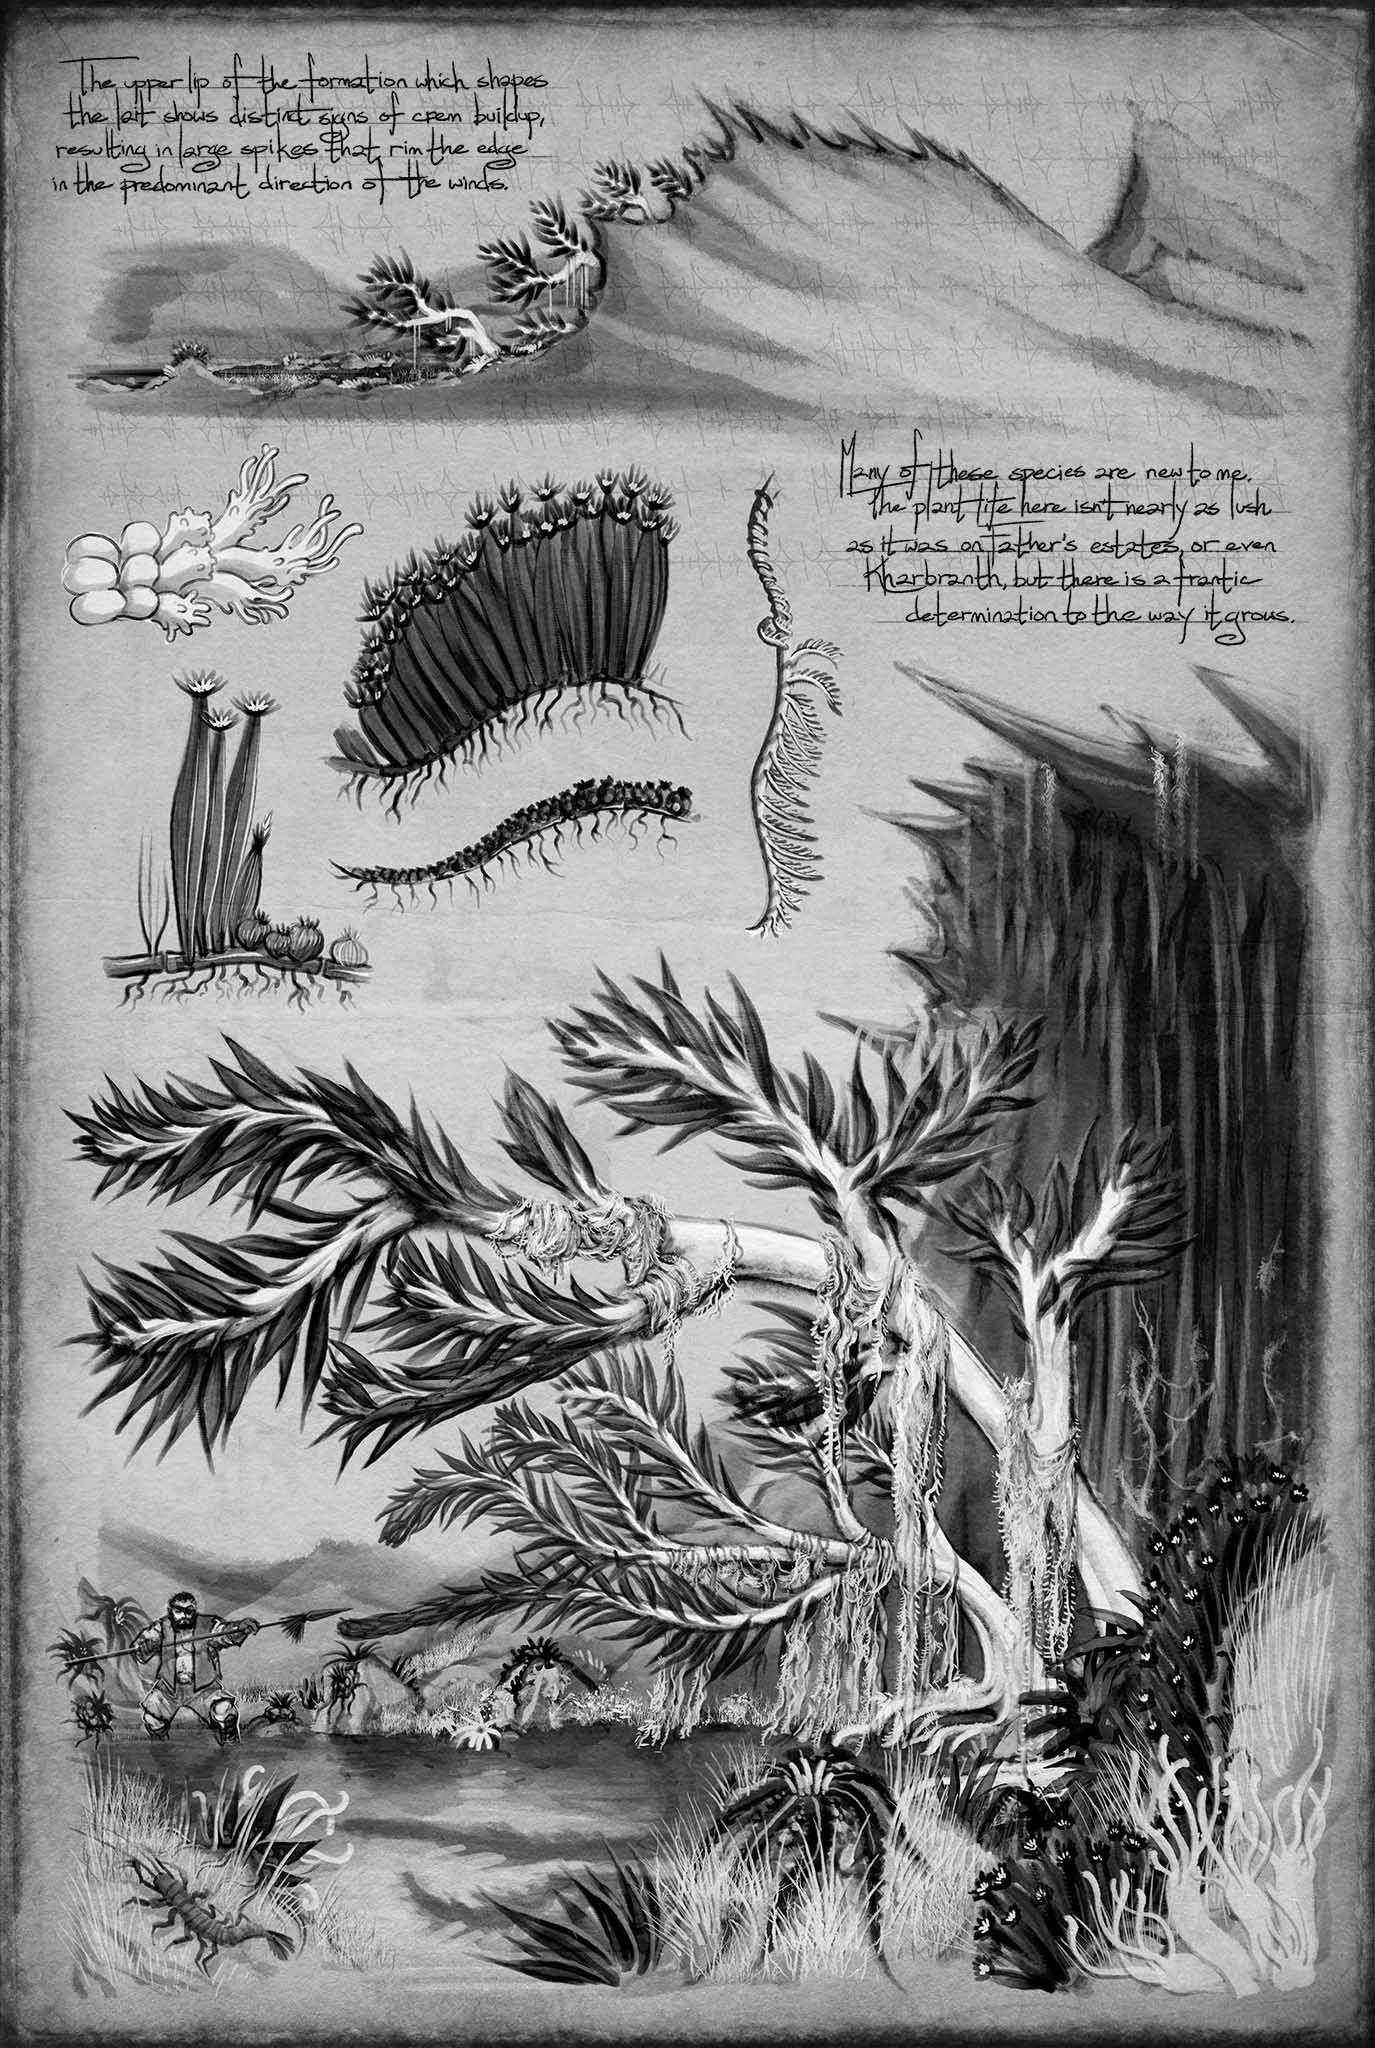 The upper lip of the formation which shapes
the lait shows distinct signs of crem buildup,
resulting in large spikes that rim the edge
in the predominant direction of the winds.
Many of these species are new to me.
The plant life here isn't nearly as lush
as it was on Father's estates, or even
Kharbranth, but there is a frantic
determination to the way it grows.